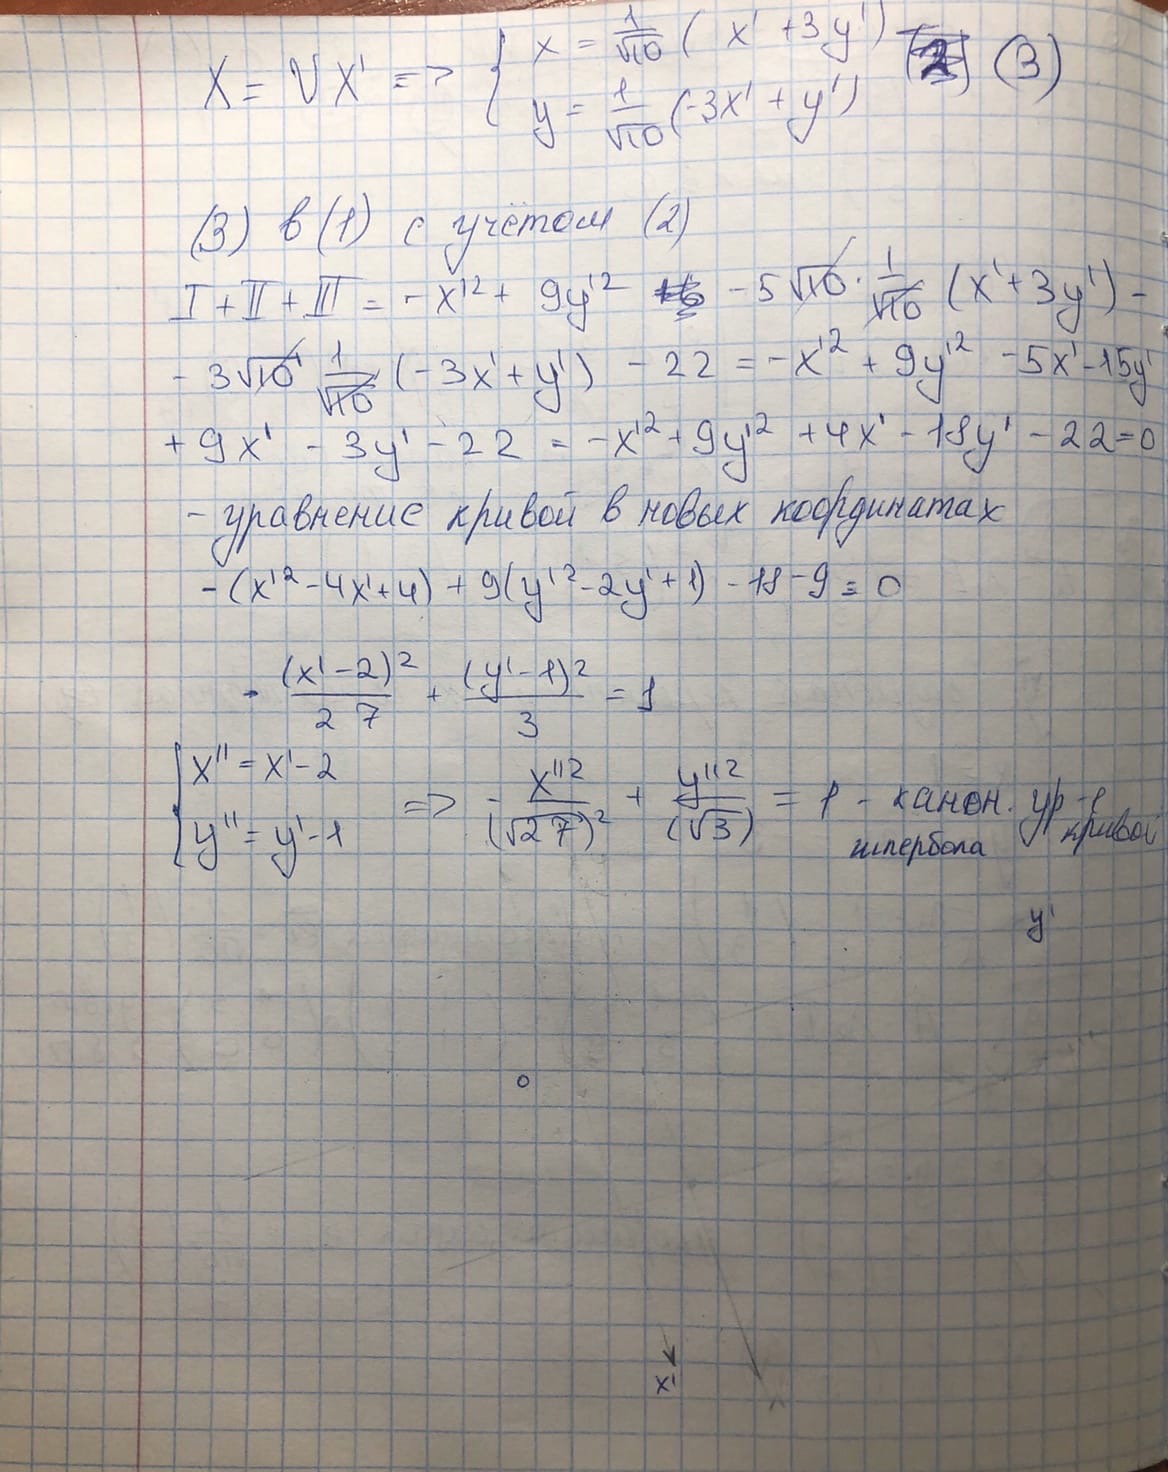 X = VX' => { x = 1/√10 ( x' + 3y' )
y = 1/√10 (-3x' + y') (3)
(3) в (1) с учётом (2)
I + II + III = -x'² + 9y'² - 5√10 · 1/√10 (x' + 3y') -
- 3√10 1/√10 (-3x' + y') - 22 = -x'² + 9y'² - 5x' - 15y'
+ 9x' - 3y' - 22 = -x'² + 9y'² + 4x' - 18y' - 22 = 0
- уравнение кривой в новых координатах
-(x'² - 4x' + 4) + 9(y'² - 2y' + 1) - 18 - 9 = 0
- (x' - 2)²/27 + (y' - 1)²/3 = 1
{ x'' = x' - 2
y'' = y' - 1 => - x''²/(√27)² + y''²/(√3) = 1 - канон. ур-е кривой
гипербола
y'
0
x'